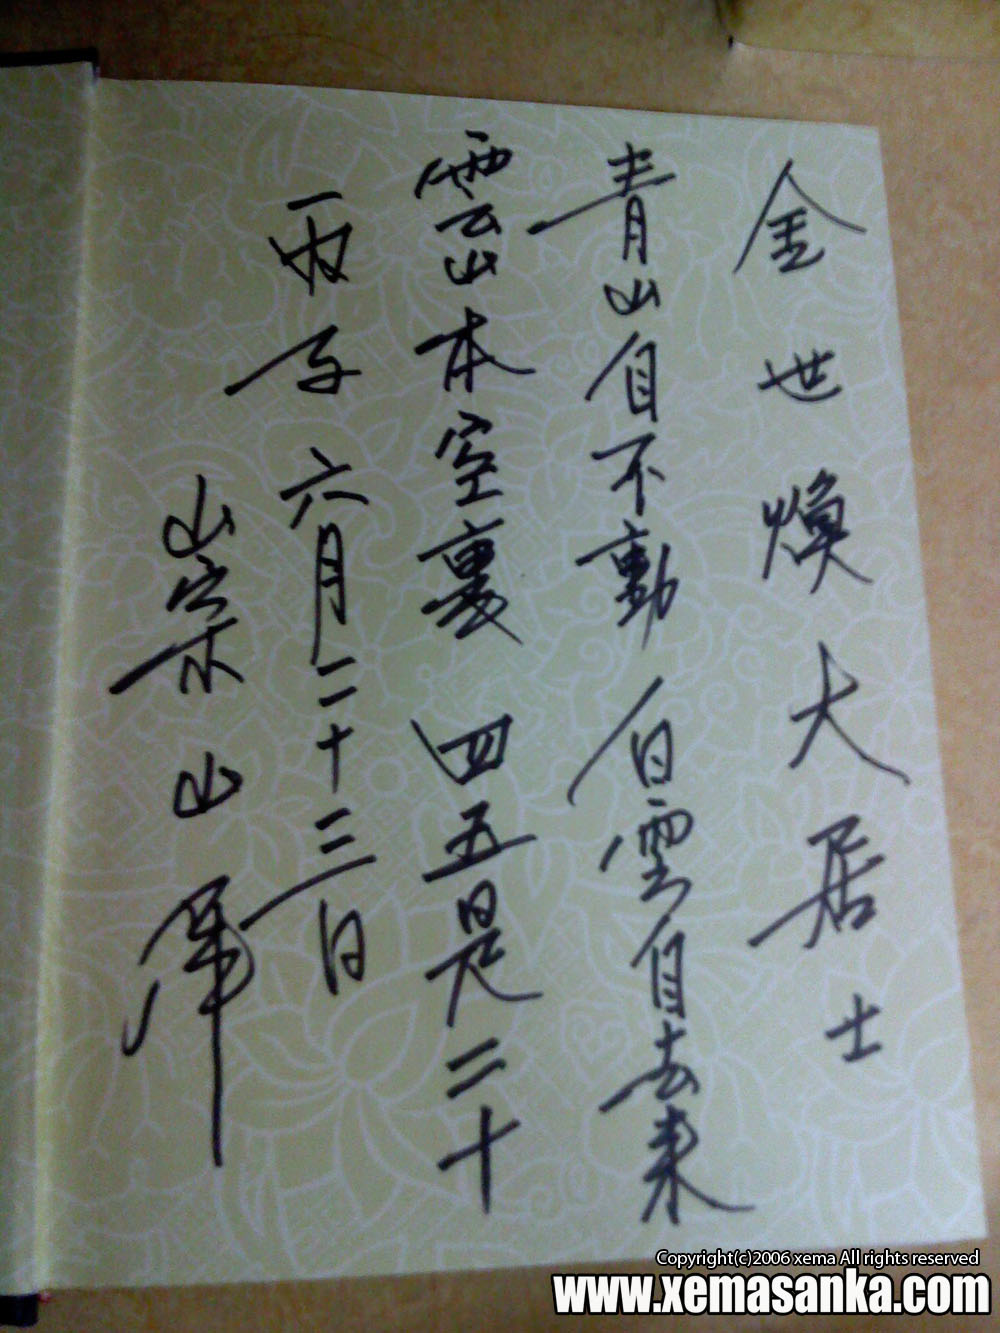 金世煥大居士
青山自不動 白雲自去來
雲山本空裏 四五是二十
丙子 六月二十三日
崇山 

Copyright(c)2006 xema All rights reserved
www.xemasanka.com